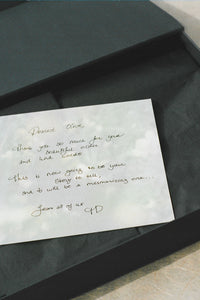 Dearest One,
Thank you so much for your
beautiful order
and kind
This is now going to be your
story to tell
and it will be a mesmerising one...